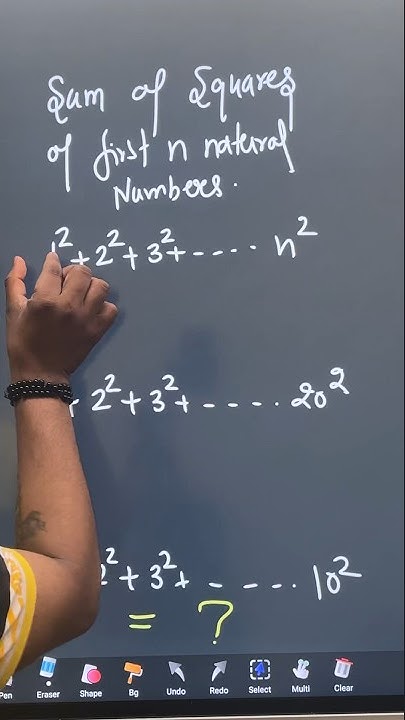 Sum of Squares
of first n natural
Numbers.
1² + 2² + 3² + ---- n²
+ 2² + 3² + ---- 20²
2² + 3² + ---- 10²
= ?
Pen Eraser Shape Bg Undo Redo Select Multi Clear